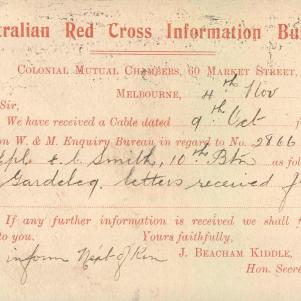 tralian Red Cross Information Bu
Colonial Mutual Chambers, 60 Market Street,
Melbourne, 4th Nov
Sir,
We have received a Cable dated 9th Oct
on W. & M. Enquiry Bureau in regard to No. 2866
Smith, 10th Btn as fol
letters received f
If any further information is received we shall
to you. Yours faithfully,
inform Next of Kin J. Beacham Kiddle,
Hon. Secre